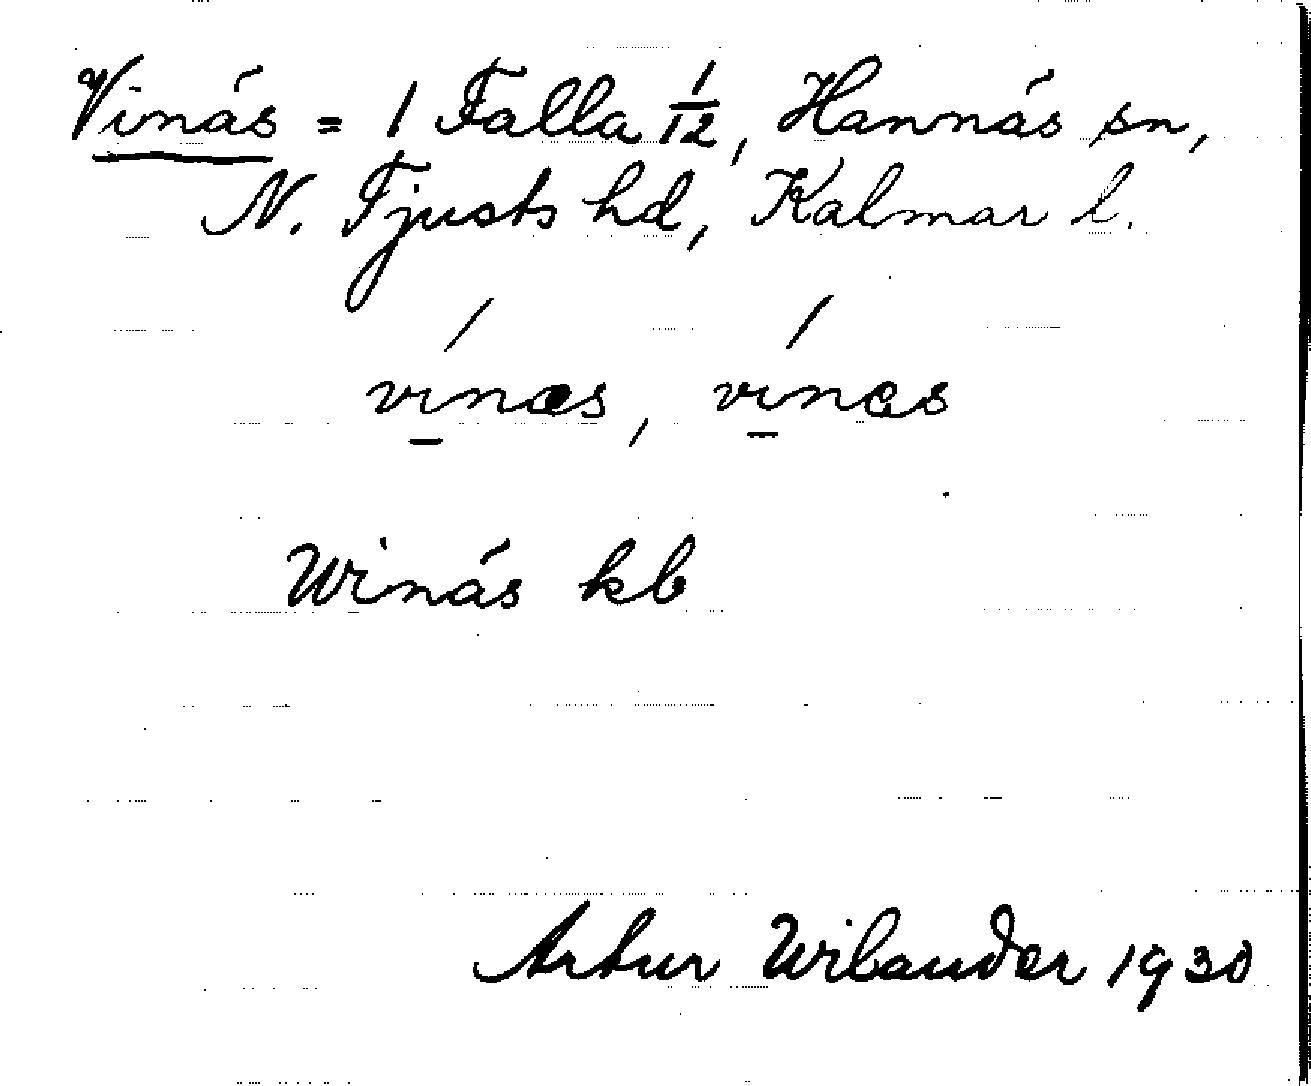 Vinás = 1 Falla 1/12, Hannás sn,
N. Tjusts hd, Kalmar l.
vinæs, vines
Winás kb
Artur Wilander 1930